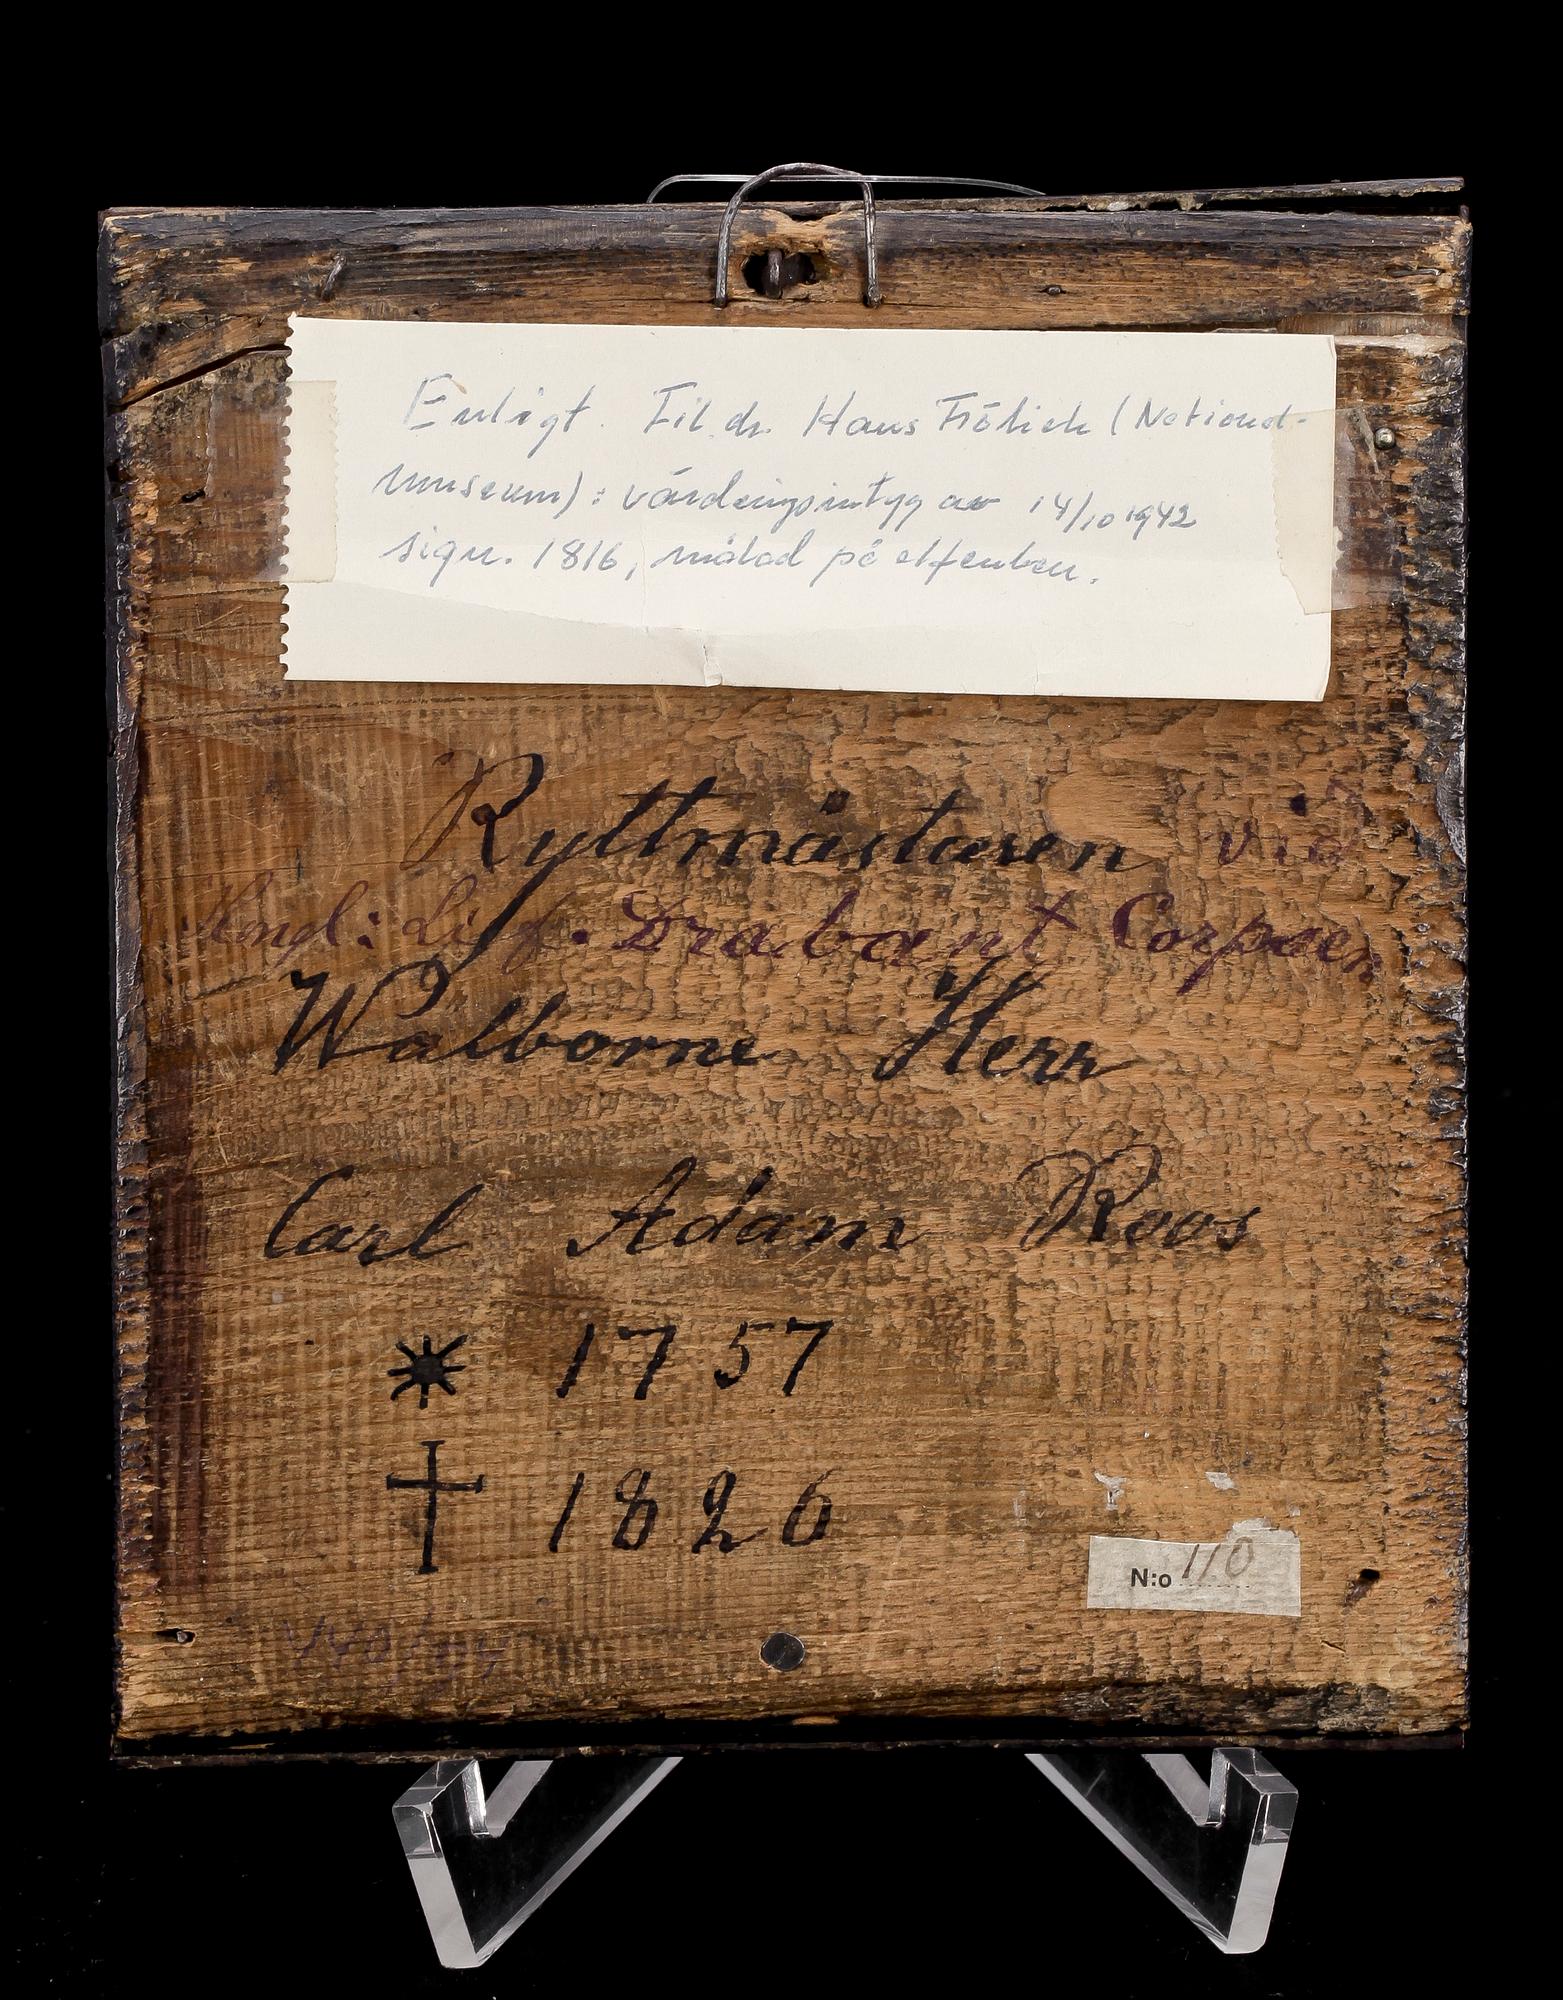 Enligt. Fil. dr. Hans Frölich (National-
museum): värderingsintyg av 14/10 1942
sign. 1816, målad på elfenben.
Ryttmästaren vid
Kongl: Lif. Drabant Corpsen
Walborne Herr
Carl Adam Roos
1757
1826
N:o 110